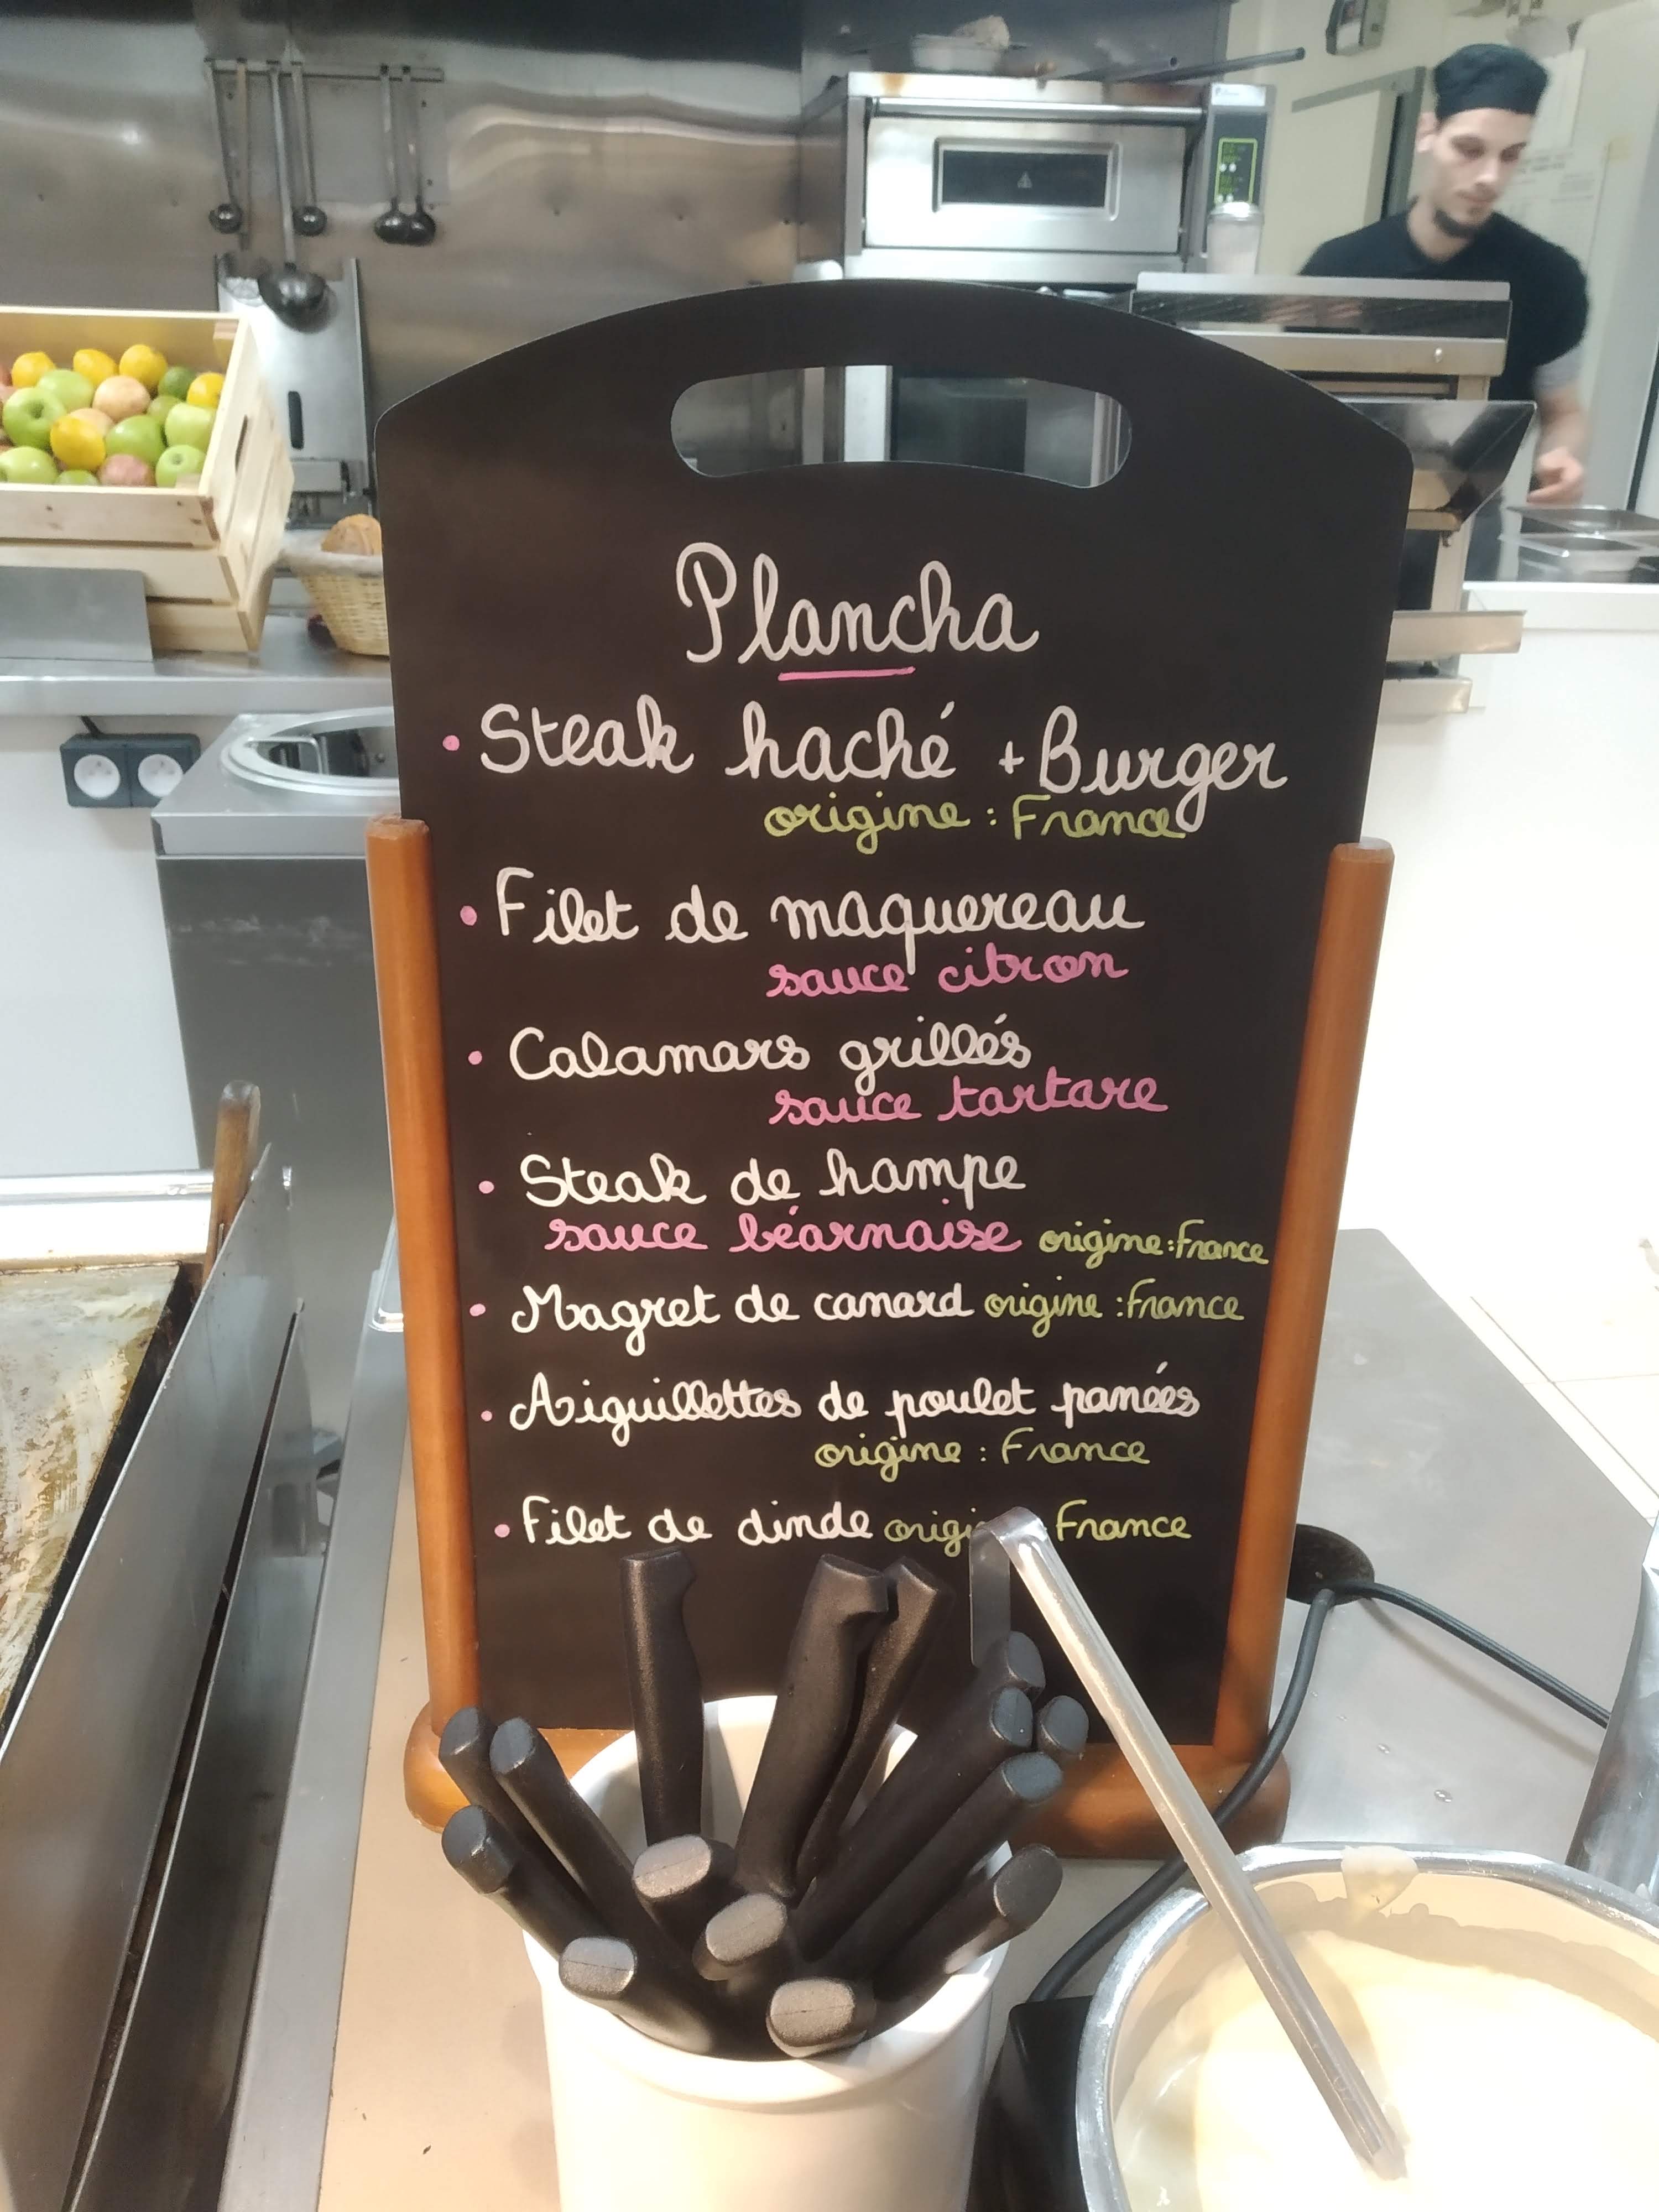 Plancha
• Steak haché + Burger
origine : France
• Filet de maquereau
sauce citron
• Calamars grillés
sauce tartare
• Steak de hampe
sauce béarnaise origine : France
• Magret de canard origine : France
• Aiguillettes de poulet panées
origine : France
• Filet de dinde France